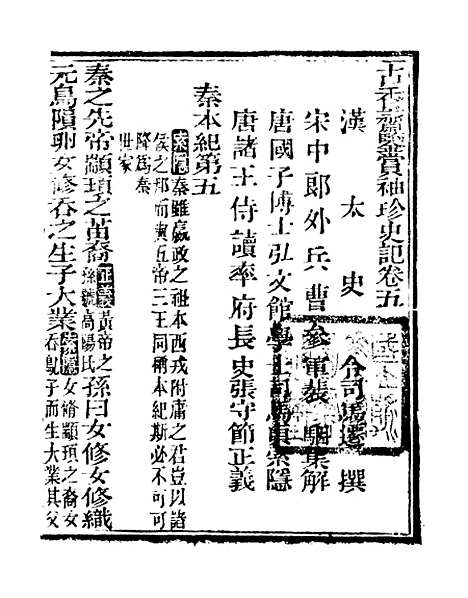 古香齋鑒賞袖珍史記卷五
漢太史令司馬遷撰
宋中郎外兵曹參軍裴駰集解
唐國子博士弘文館學士司馬貞索隱
唐諸王侍讀率府長史張守節正義
秦本紀第五
索隱秦雖嬴政之祖本西戎附庸之君豈以諸
侯之邦而與五帝三王同稱本紀斯必不可可
降爲秦
世家
秦之先帝顓頊之苗裔正義黃帝之孫曰女修女修織
孫號高陽氏
元鳥隕卵女修吞之生子大業索隱女脩顓頊之裔女
吞鳦子而生大業其父